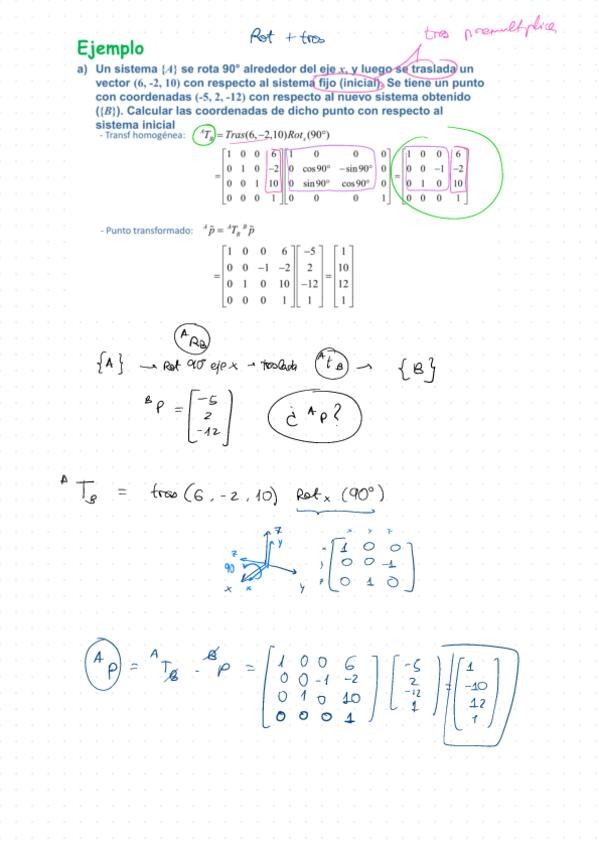 Rot + tras
tras premultiplica
Ejemplo
a) Un sistema {A} se rota 90° alrededor del eje x, y luego se traslada un
vector (6, -2, 10) con respecto al sistema fijo (inicial). Se tiene un punto
con coordenadas (-5, 2, -12) con respecto al nuevo sistema obtenido
({B}). Calcular las coordenadas de dicho punto con respecto al
sistema inicial
- Transf homogénea: ᴬT_B = Tras(6,−2,10)Rot_x(90°)
= [1 0 0 6] [1 0 0 0] = [1 0 0 6]
[0 1 0 −2] [0 cos90° −sin90° 0] [0 0 −1 −2]
[0 0 1 10] [0 sin90° cos90° 0] [0 1 0 10]
[0 0 0 1] [0 0 0 1] [0 0 0 1]
- Punto transformado: ᴬp̃ = ᴬT_B ᴮp̃
= [1 0 0 6] [−5] = [1]
[0 0 −1 −2] [2] [10]
[0 1 0 10] [−12] [12]
[0 0 0 1] [1] [1]
ᴬR_B
{A} → Rot 90 eje x → traslada ᴬt_B → {B}
ᴮP = [-5]
[2]
[-12]
¿ ᴬP?
ᴬT_B = tras(6, -2, 10) Rot_x (90°)
z
y
z
90
x
x
y
x y z
x [1 0 0]
y [0 0 -1]
z [0 1 0]
ᴬP = ᴬT_B · ᴮP = [1 0 0 6] [-5] = [1]
[0 0 -1 -2] [2] [-10]
[0 1 0 10] [-12] [12]
[0 0 0 1] [1] [1]